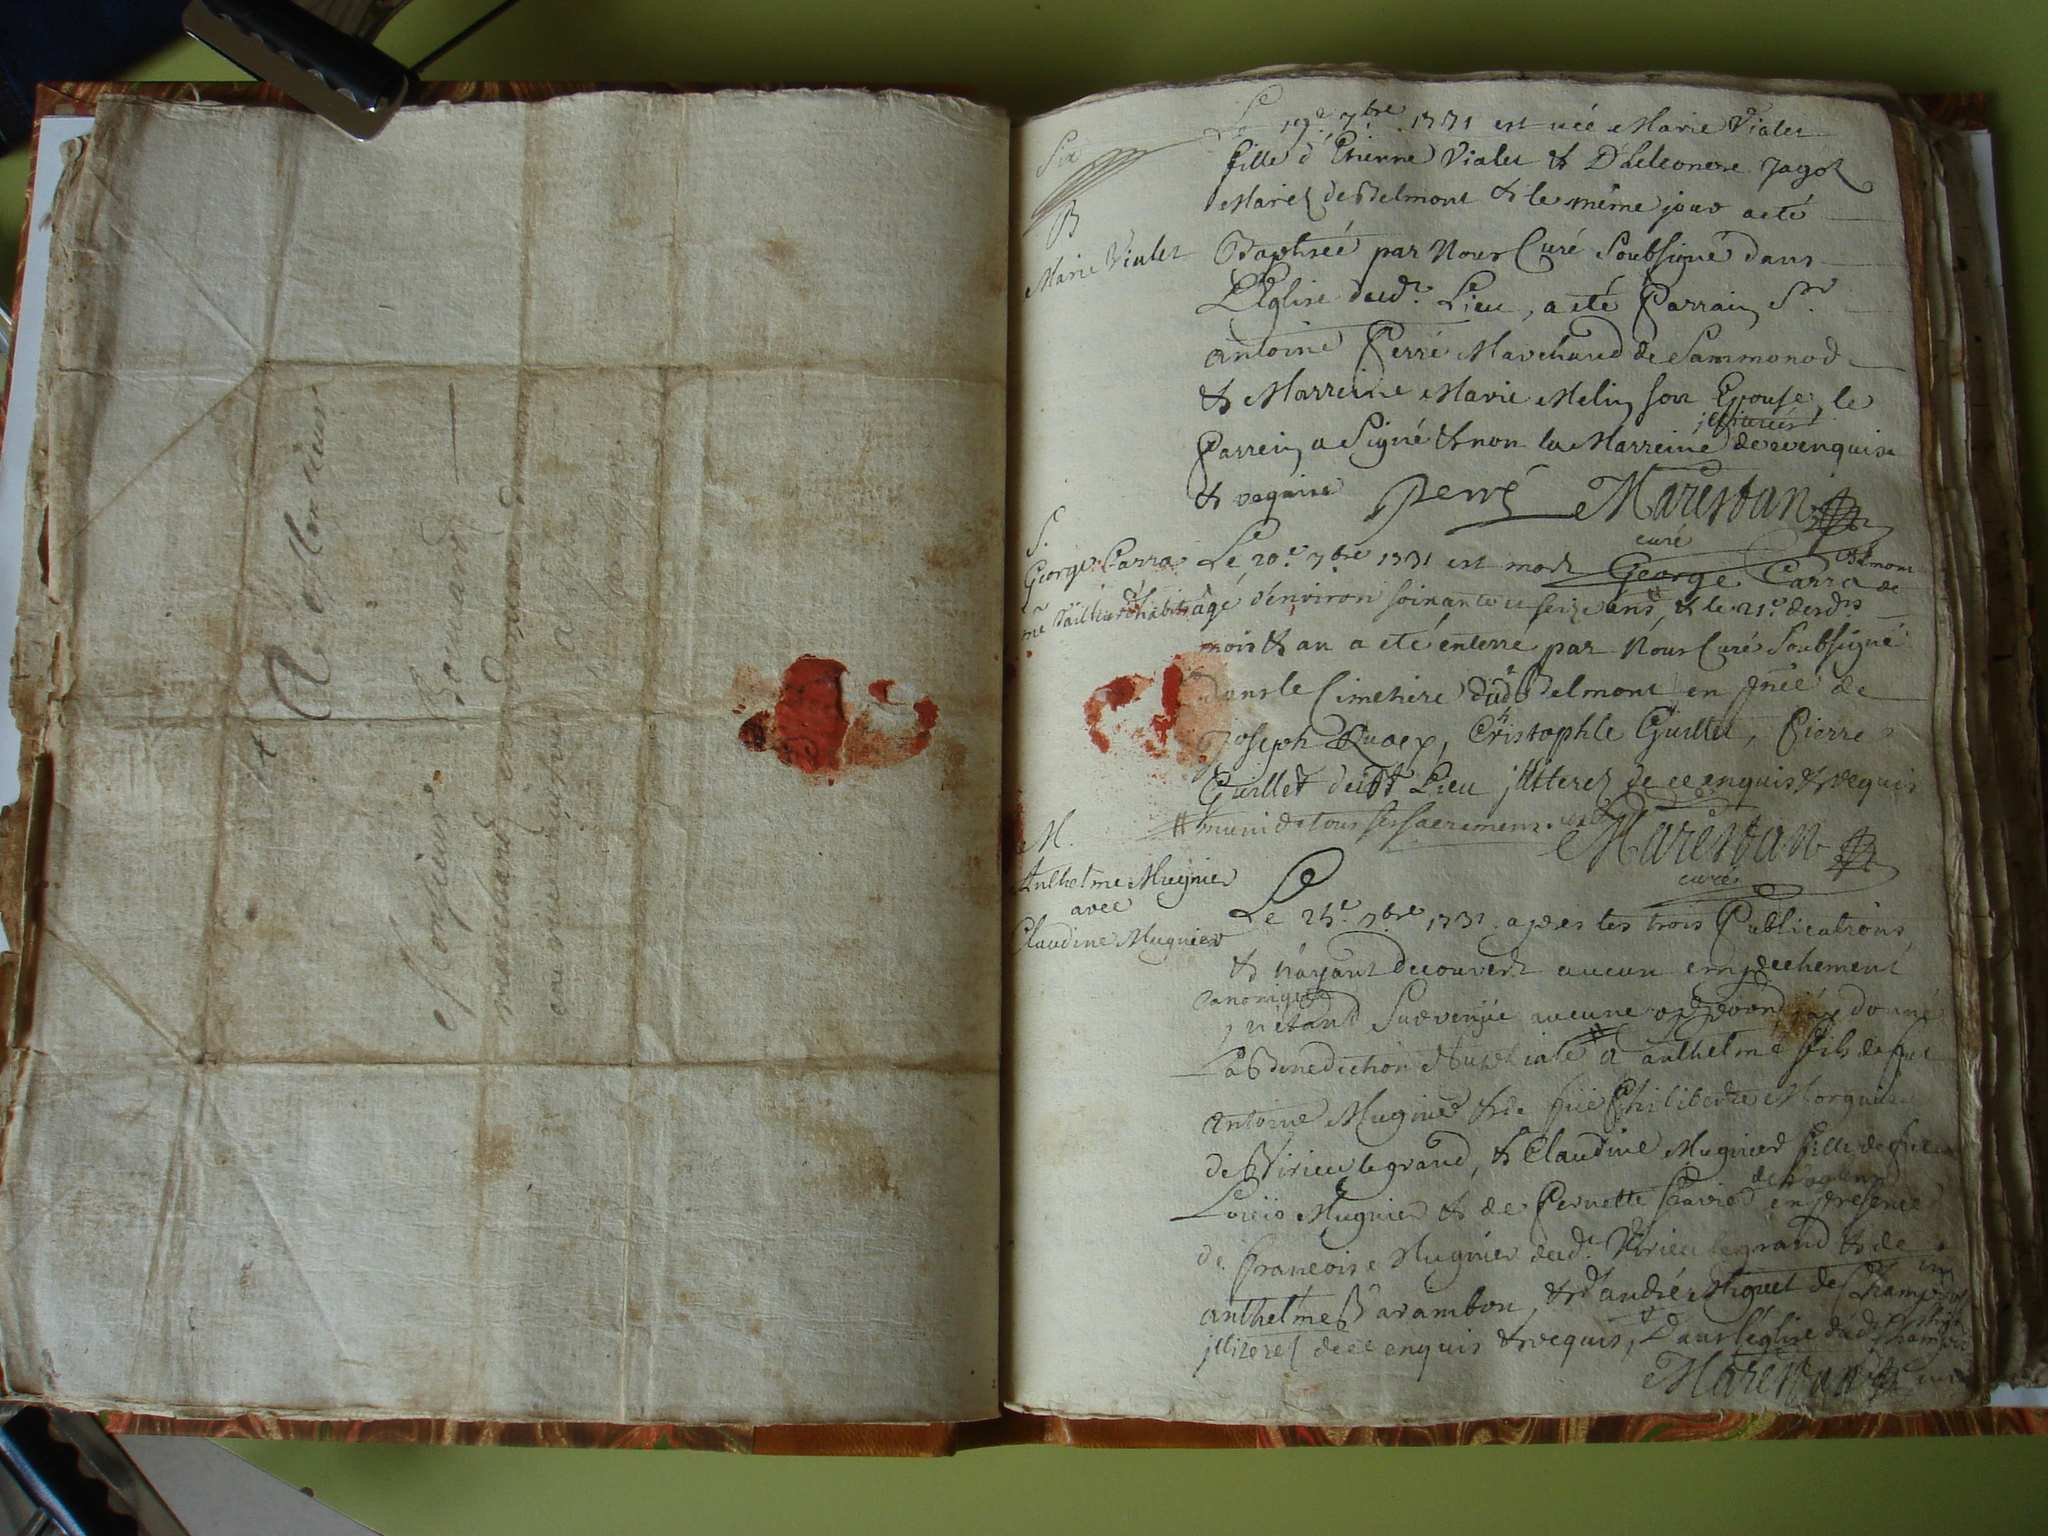 A Monsieur
Monsieur Bouvard
marchand
Six
B
Marie Vialet
Le 19.e 7bre 1731 est née Marie Vialet
fille d'Etienne Vialet & D'aleonore Jagot
Mariez de Belmont & le même jour a eté
Baptisée par Nous Curé Soubsigné dans
L'Eglise dud.t Lieu, a eté Parrain S.r
antoine Perré Marchand de Sammonod
& Marreine Marie Melin son Epouse, le
Parrein a Signé & non la Marreine illiteréé de ce enquise
& requise Perré Marestan
curé
S.
George Carra
me Tailleur d'habits
Le 20.e 7bre 1731 est mort George Carra de Belmont
âgé d'environ soixante et seize ans # & le 21.e desd.ts
mois & an a eté enterré par Nous Curé Soubsigné
dans le Cimetière dud. Belmont en pnce de
Joseph, Christophle Guillet, Pierre
Guillet dudt Lieu illiterez de ce enquis & requis
# muni de tous ses sacremens. Marestan
curé
M.
Anthelme Mugnier
avec
Claudine Mugnier
Le 25.e 7bre 1731 après les trois Publications
& n'ayant decouvert aucun empechement
Canonique
n'etant Survenüe aucune opposon j'ay donné
La Benediction Nuptiale # a anthelme fils de feu
antoine Mugnier & de füe Philiberte
de Virieu le grand, & a Claudine Mugnier fille de feu
Loüis Mugnier & de Pernette en presence
de francois Mugnier dud.t Virieu le grand & de
anthelme Barambon, & d'andré Miguet de
illiterez de ce enquis & requis, Dans l'église dud.t
Marestan curé